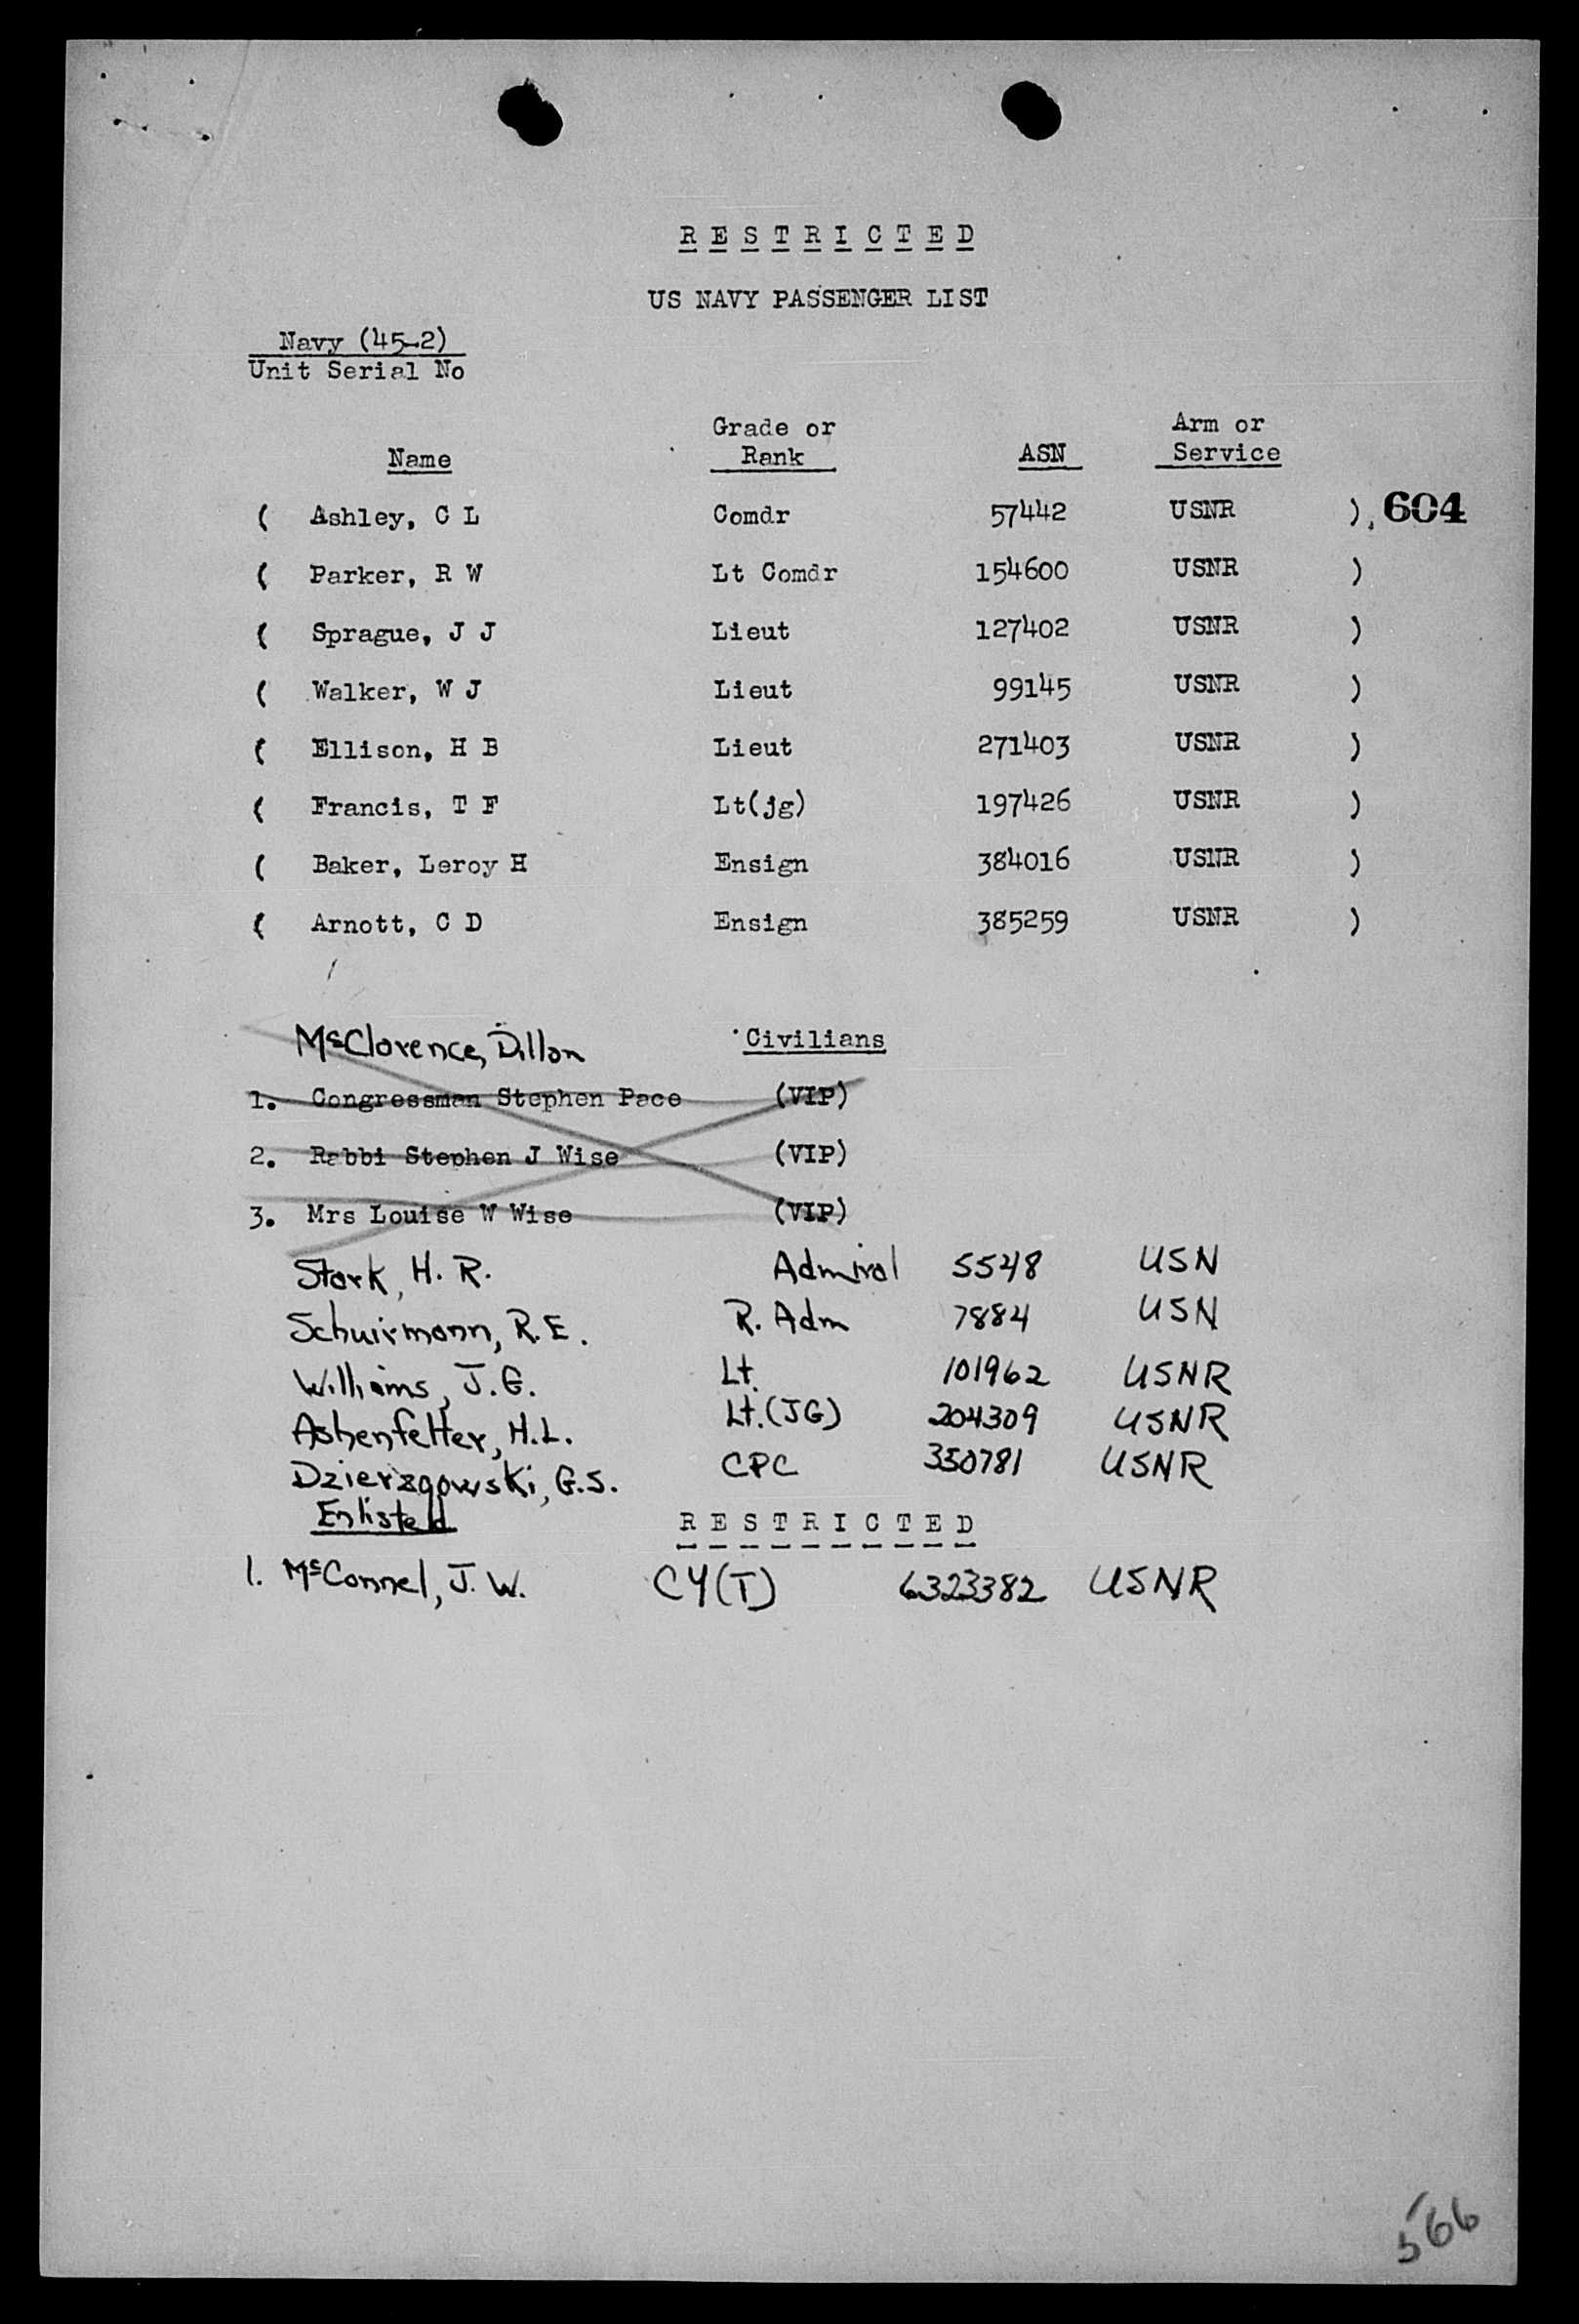 R E S T R I C T E D
US NAVY PASSENGER LIST
Navy (45-2)
Unit Serial No
Name Grade or Rank ASN Arm or Service
( Ashley, C L Comdr 57442 USNR ) 604
( Parker, R W Lt Comdr 154600 USNR )
( Sprague, J J Lieut 127402 USNR )
( Walker, W J Lieut 99145 USNR )
( Ellison, H B Lieut 271403 USNR )
( Francis, T F Lt(jg) 197426 USNR )
( Baker, Leroy H Ensign 384016 USNR )
( Arnott, C D Ensign 385259 USNR )
McClorence, Dillon Civilians
1. Congressman Stephen Pace (VIP)
2. Rabbi Stephen J Wise (VIP)
3. Mrs Louise W Wise (VIP)
Stark, H. R. Admiral 5548 USN
Schuirmann, R. E. R. Adm 7884 USN
Williams, J. G. Lt. 101962 USNR
Ashenfelter, H. L. Lt. (JG) 204309 USNR
Dzierzgowski, G. S. CPC 350781 USNR
Enlisted
R E S T R I C T E D
1. McConnel, J. W. CY(T) 6323382 USNR
566